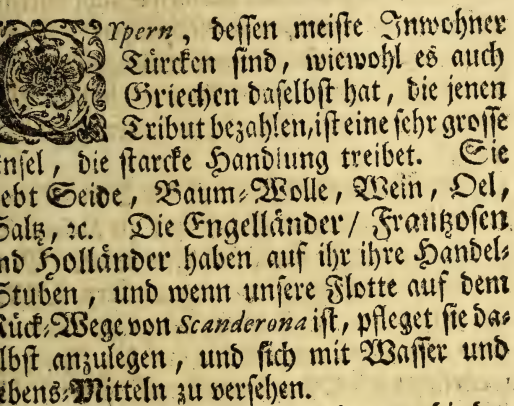 CYpern, dessen meiste Inwohner
Türcken sind, wiewohl es auch
Griechen daselbst hat, die jenen
Tribut bezahlen, ist eine sehr grosse
nsel, die starcke Handlung treibet. Sie
ebt Seide, Baum-Wolle, Wein, Oel,
Saltz, ꝛc. Die Engelländer / Frantzosen
nd Holländer haben auf ihr ihre Handel-
Stuben, und wenn unsere Flotte auf dem
Rück-Wege von Scanderona ist, pfleget sie da-
lbst anzulegen, und sich mit Wasser und
ebens-Mitteln zu versehen.